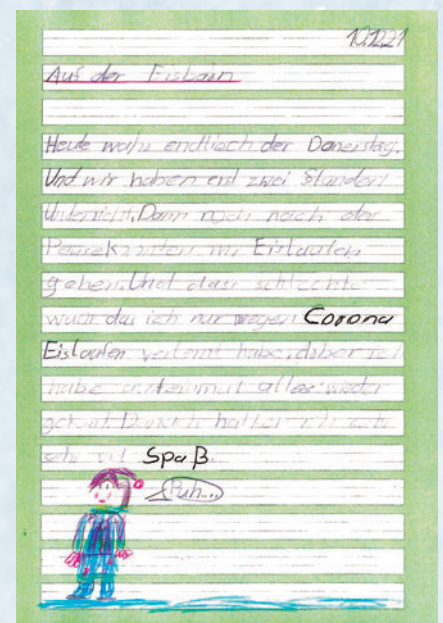 10.12.21
Auf der Eisbahn
Heute wahr endliech der Donerstag.
Und wir haben erst zwei Stunden
Unterricht. Dann nach der
Pause konnten wir Eislaufen
gehen. Und dass schlechte
war das ich nur wegen Corona
Eislaufen verlernt habe. aber ich
habe alles wieder
Danach hatte ich
sehr vil Spaß.
Puh...